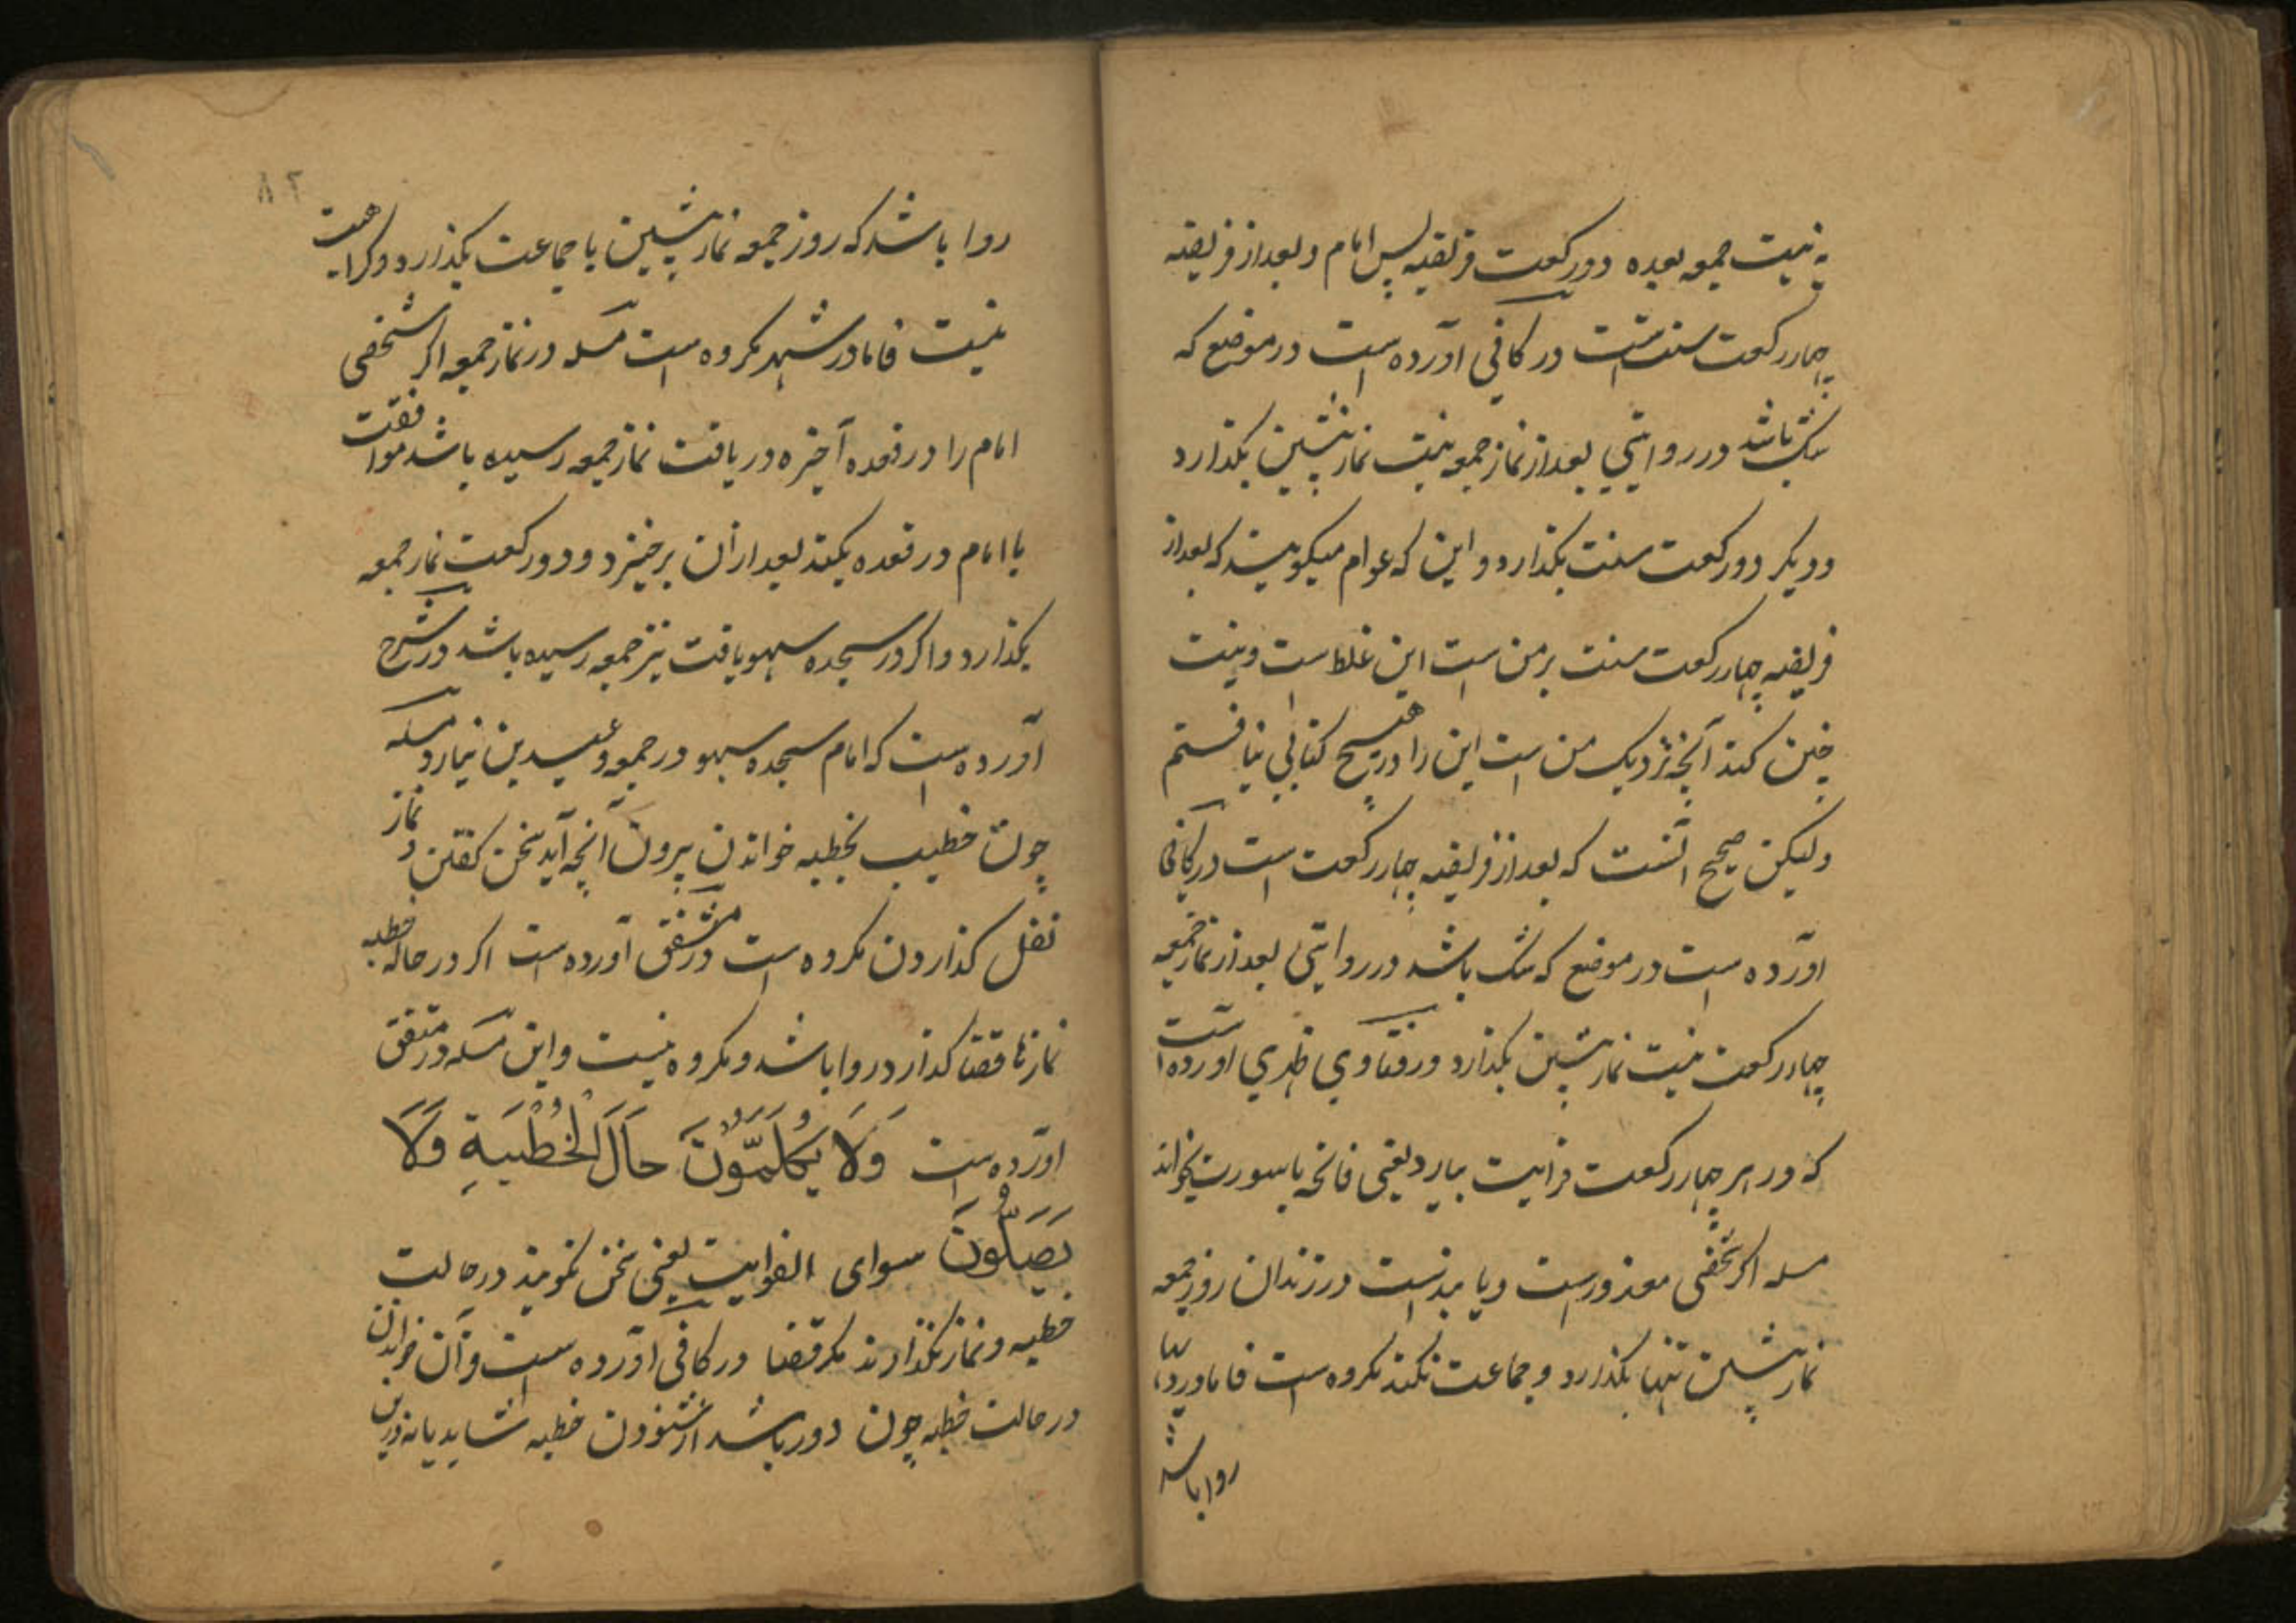 به نیت جمعه بعده دو رکعت فریضه پس امام و بعد از فریضه
چهار رکعت سنت است در کافی آورده است در موضع که
شک باشد در روایتی بعد از نماز جمعه نیت نماز پیشین بکذارد
و دیکر دو رکعت سنت بکذارد و این که عوام میکویند که بعد از
فریضه چهار رکعت سنت بر من است این غلط است و نیت
چنین کند آنچه نزدیک من است این را در هیچ کتابی نیافتم
ولیکن صحیح آنست که بعد از فریضه چهار رکعت است در کافی
آورده است در موضع که شک باشد در روایتی بعد از نماز جمعه
چهار رکعت نیت نماز پیشین بکذارد و در فتاوی ظهری آورده است
که در هر چهار رکعت قرایت بیارد یعنی فاتحه با سورت بخواند
مسله اکر شخصی معذورست و یا بندست در زندان روز جمعه
نماز پیشین تنها بکذارد و جماعت نکند مکروه است فاما در
روا باشد
۸۲
روا باشد که روز جمعه نماز پیشین با جماعت بکذارد و کراهیت
نیست فاما در شهر مکروه است مسله در نماز جمعه اکر شخصی
امام را در قعده آخیره دریافت نماز جمعه رسیده باشد موافقت
با امام در قعده بکند بعد از آن برخیزد و دو رکعت نماز جمعه
بکذارد و اکر در سجده سهو یافت نیز جمعه رسیده باشد در شرح
آورده است که امام سجده سهو در جمعه و عیدین نیارد مسله
چون خطیب بخطبه خواندن بیرون آید سخن کفتن و نماز
نفل کذاردن مکروه است در متفق آورده است اکر در حاله خطبه
نمازها قضا کذارد روا باشد و مکروه نیست و این مسله در متفق
آورده است وَلَا يُكَلِّمُونَ حَالَ الْخُطْبَةِ وَلَا
يُصَلُّونَ سوای الفوایت یعنی سخن نکویند در حالت
خطبه و نماز نکذارند مکر قضا در کافی آورده است قرآن خواندن
در حالت خطبه چون دور باشد از شنودن خطبه شاید یا نه درین